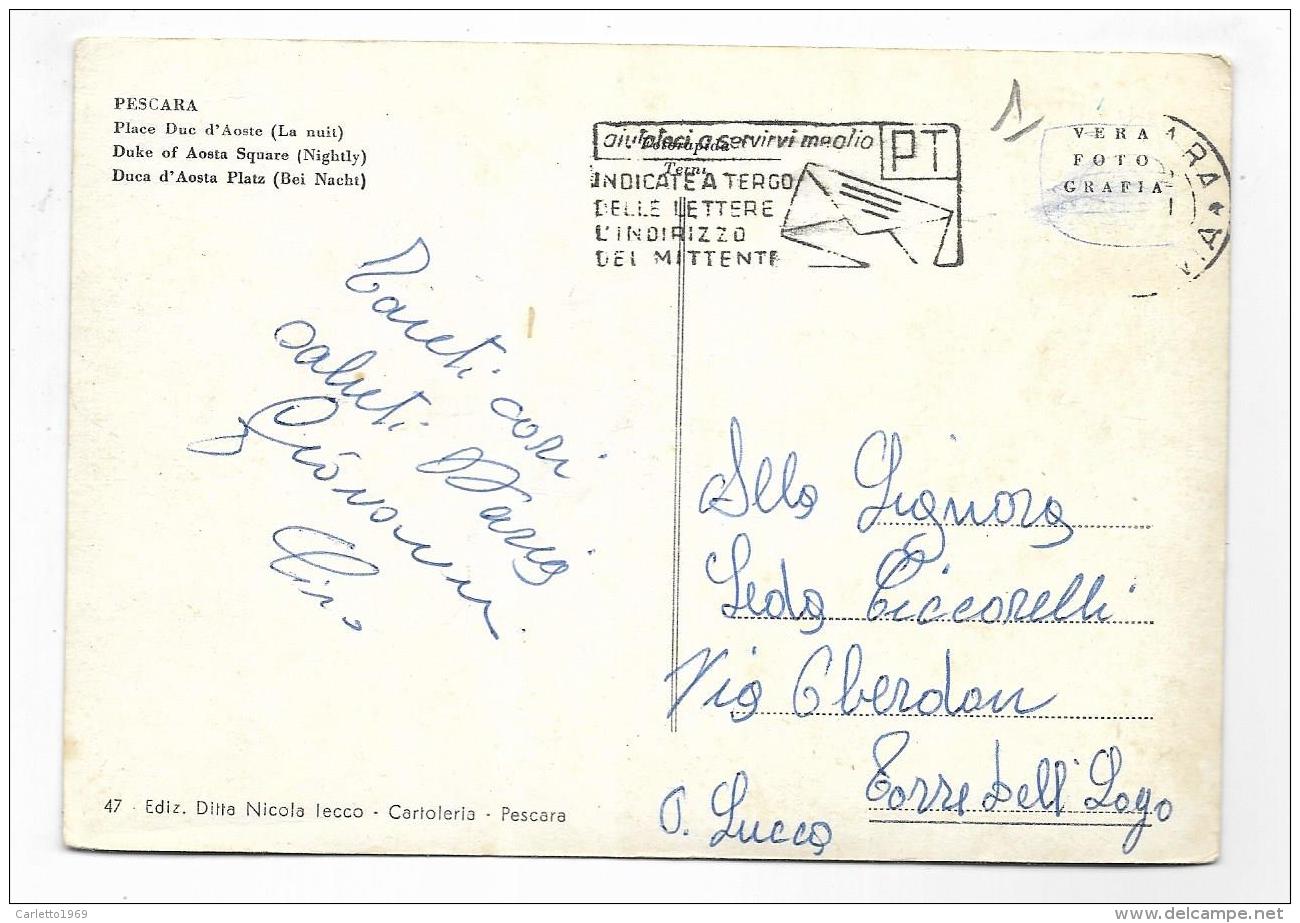 PESCARA
Place Duc d'Aoste (La nuit)
Duke of Aosta Square (Nightly)
Duca d'Aosta Platz (Bei Nacht)
aiutateci a servirvi meglio
PT
Fotorapida
Terni
INDICATE A TERGO
DELLE LETTERE
L'INDIRIZZO
DEL MITTENTE
VERA
FOTO
GRAFIA
Tanti cari
saluti Maria
Giovanni
Alla Signora
Leda Ciccorelli
Via Oberdan
Torre dell' Lago
P. Lucca
47 - Ediz. Ditta Nicola Iecco - Cartoleria - Pescara
Carletto1969
delcampe.net